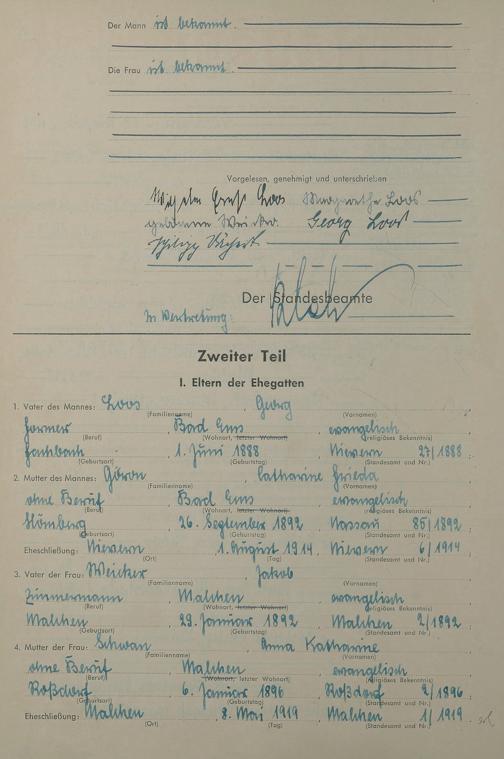 Der Mann ist bekannt.
Die Frau ist bekannt.
Vorgelesen, genehmigt und unterschrieben
Wilhelm Ernst Loos Margarethe Loos
geborene Weicker. Georg Loos
Philipp
Der Standesbeamte
In Vertretung:
Zweiter Teil
I. Eltern der Ehegatten
1. Vater des Mannes: Loos, Georg
(Familienname) (Vornamen)
Former, Bad Ems, evangelisch
(Beruf) (Wohnort, letzter Wohnort) (religiöses Bekenntnis)
Fachbach, 1. Juni 1888, Nievern 27/1888
(Geburtsort) (Geburtstag) (Standesamt und Nr.)
2. Mutter des Mannes: Catharine Frieda
(Familienname) (Vornamen)
ohne Beruf, Bad Ems, evangelisch
(Beruf) (Wohnort, letzter Wohnort) (religiöses Bekenntnis)
Hömberg, 26. September 1892, Nassau 85/1892
(Geburtsort) (Geburtstag) (Standesamt und Nr.)
Eheschließung: Nievern, 1. August 1914. Nievern 6/1914
(Ort) (Tag) (Standesamt und Nr.)
3. Vater der Frau: Weicker, Jakob
(Familienname) (Vornamen)
Zimmermann, Malchen, evangelisch
(Beruf) (Wohnort, letzter Wohnort) (religiöses Bekenntnis)
Malchen, 29. Januar 1892, Malchen 2/1892
(Geburtsort) (Geburtstag) (Standesamt und Nr.)
4. Mutter der Frau: Schwan, Anna Katharine
(Familienname) (Vornamen)
ohne Beruf, Malchen, evangelisch
(Beruf) (Wohnort, letzter Wohnort) (religiöses Bekenntnis)
Roßdorf, 6. Januar 1896, Roßdorf 2/1896
(Geburtsort) (Geburtstag) (Standesamt und Nr.)
Eheschließung: Malchen, 8. Mai 1919, Malchen 1/1919
(Ort) (Tag) (Standesamt und Nr.)